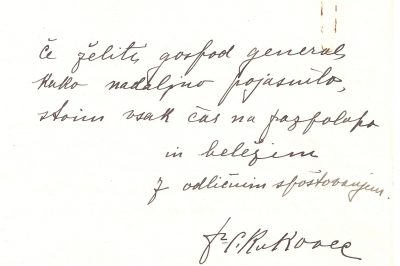 Če želite, gospod general,
kako nadaljno pojasnilo,
stoim vsak čas na razpolago
in beležim
z odličnim spoštovanjem